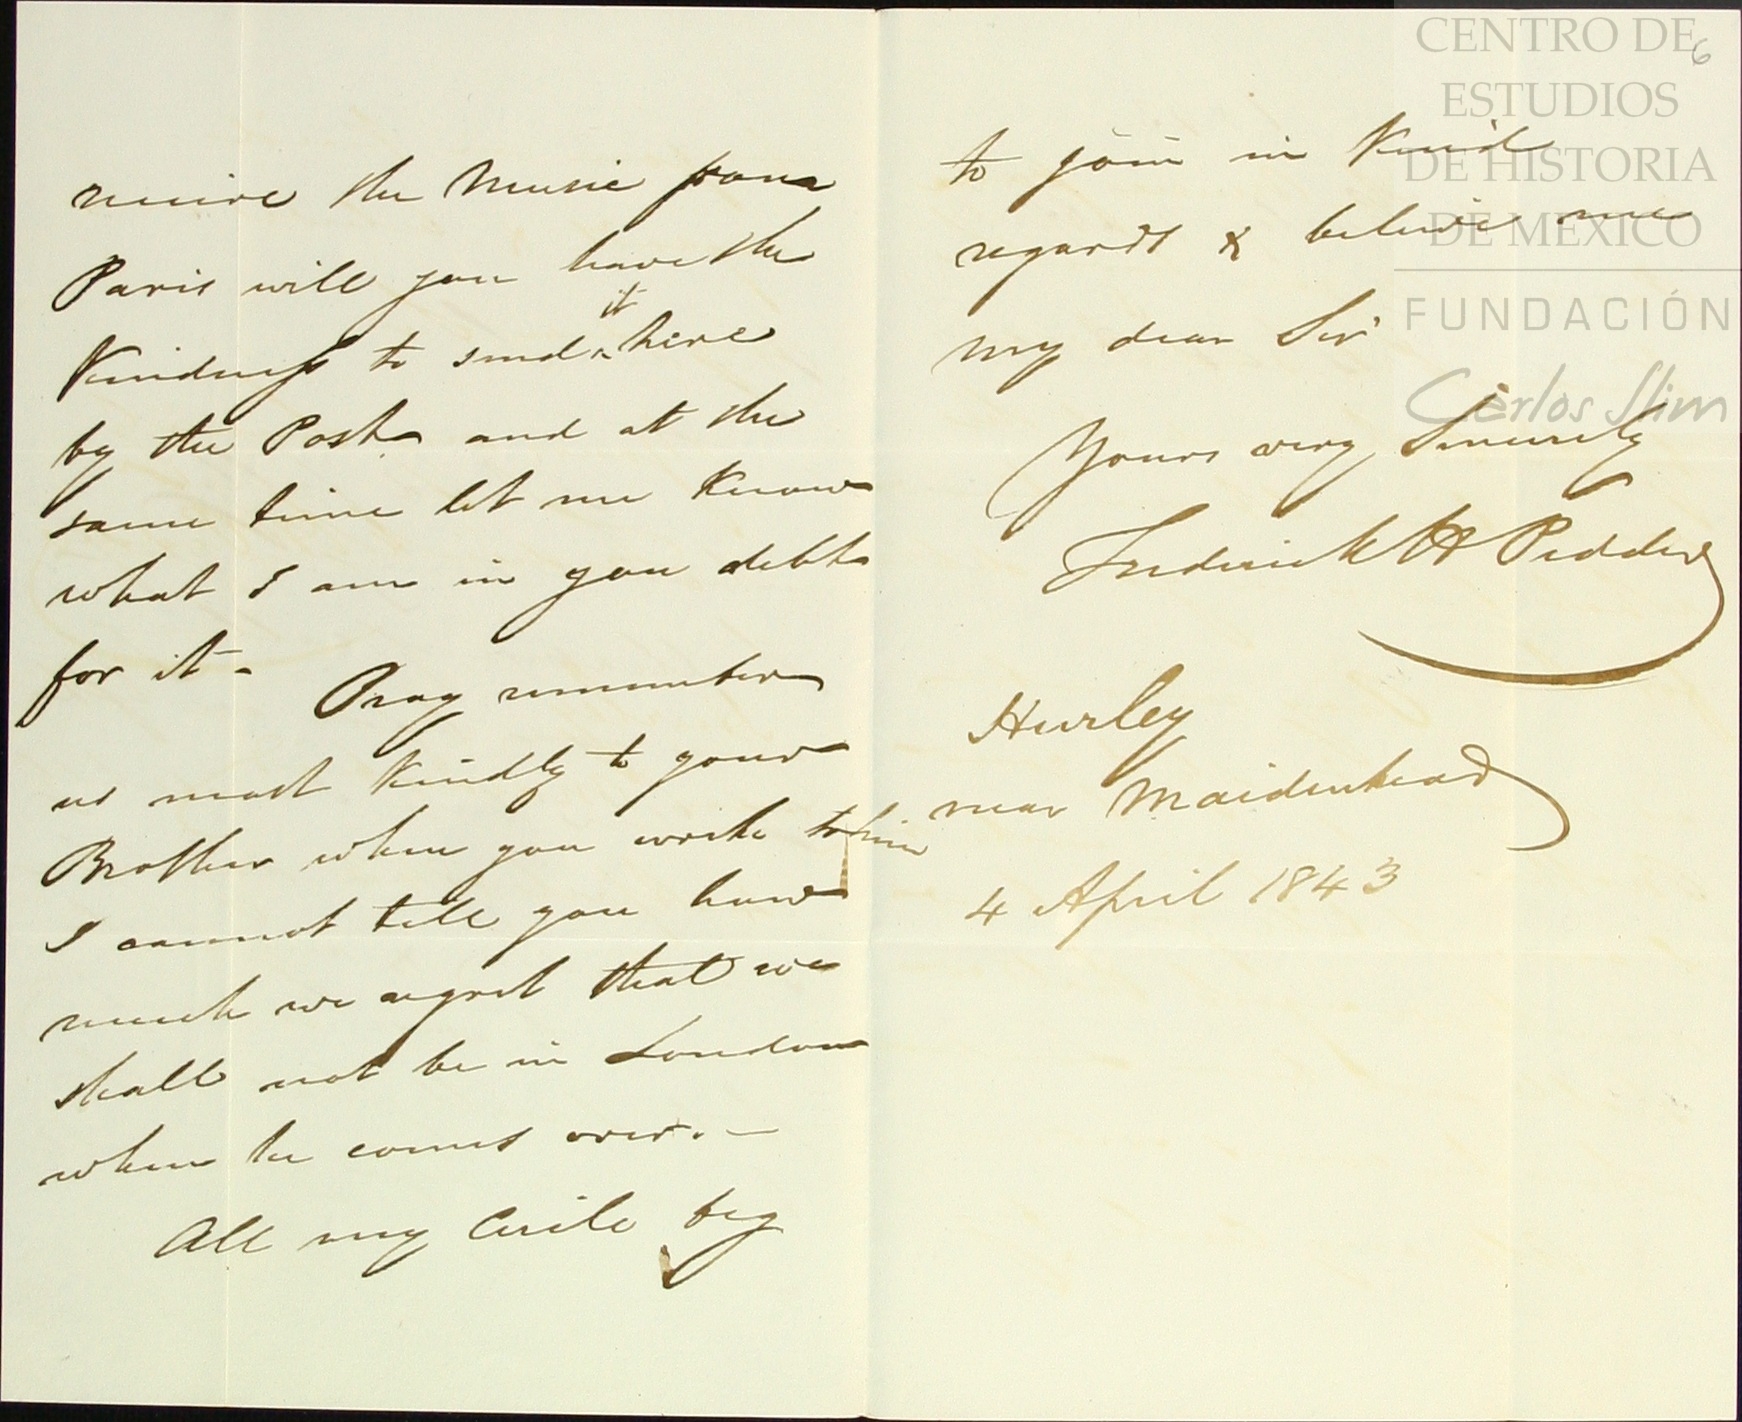 receive the Music from
Paris will you have the
Kindness to send it here
by the Post and at the
same time let me Know
what I am in you debt
for it - Pray remember
us most Kindly to your
Brother when you write to him
I cannot tell you how
much we regret that we
shall not be in London
when he comes over. —
All my Circle beg
to join in Kind
regards & believe me
my dear Sir
Yours very Sincerely
Frederick H Pedder
Hurley
near Maidenhead
4 April 1843
6
CENTRO DE
ESTUDIOS
DE HISTORIA
DE MÉXICO
FUNDACIÓN
Carlos Slim